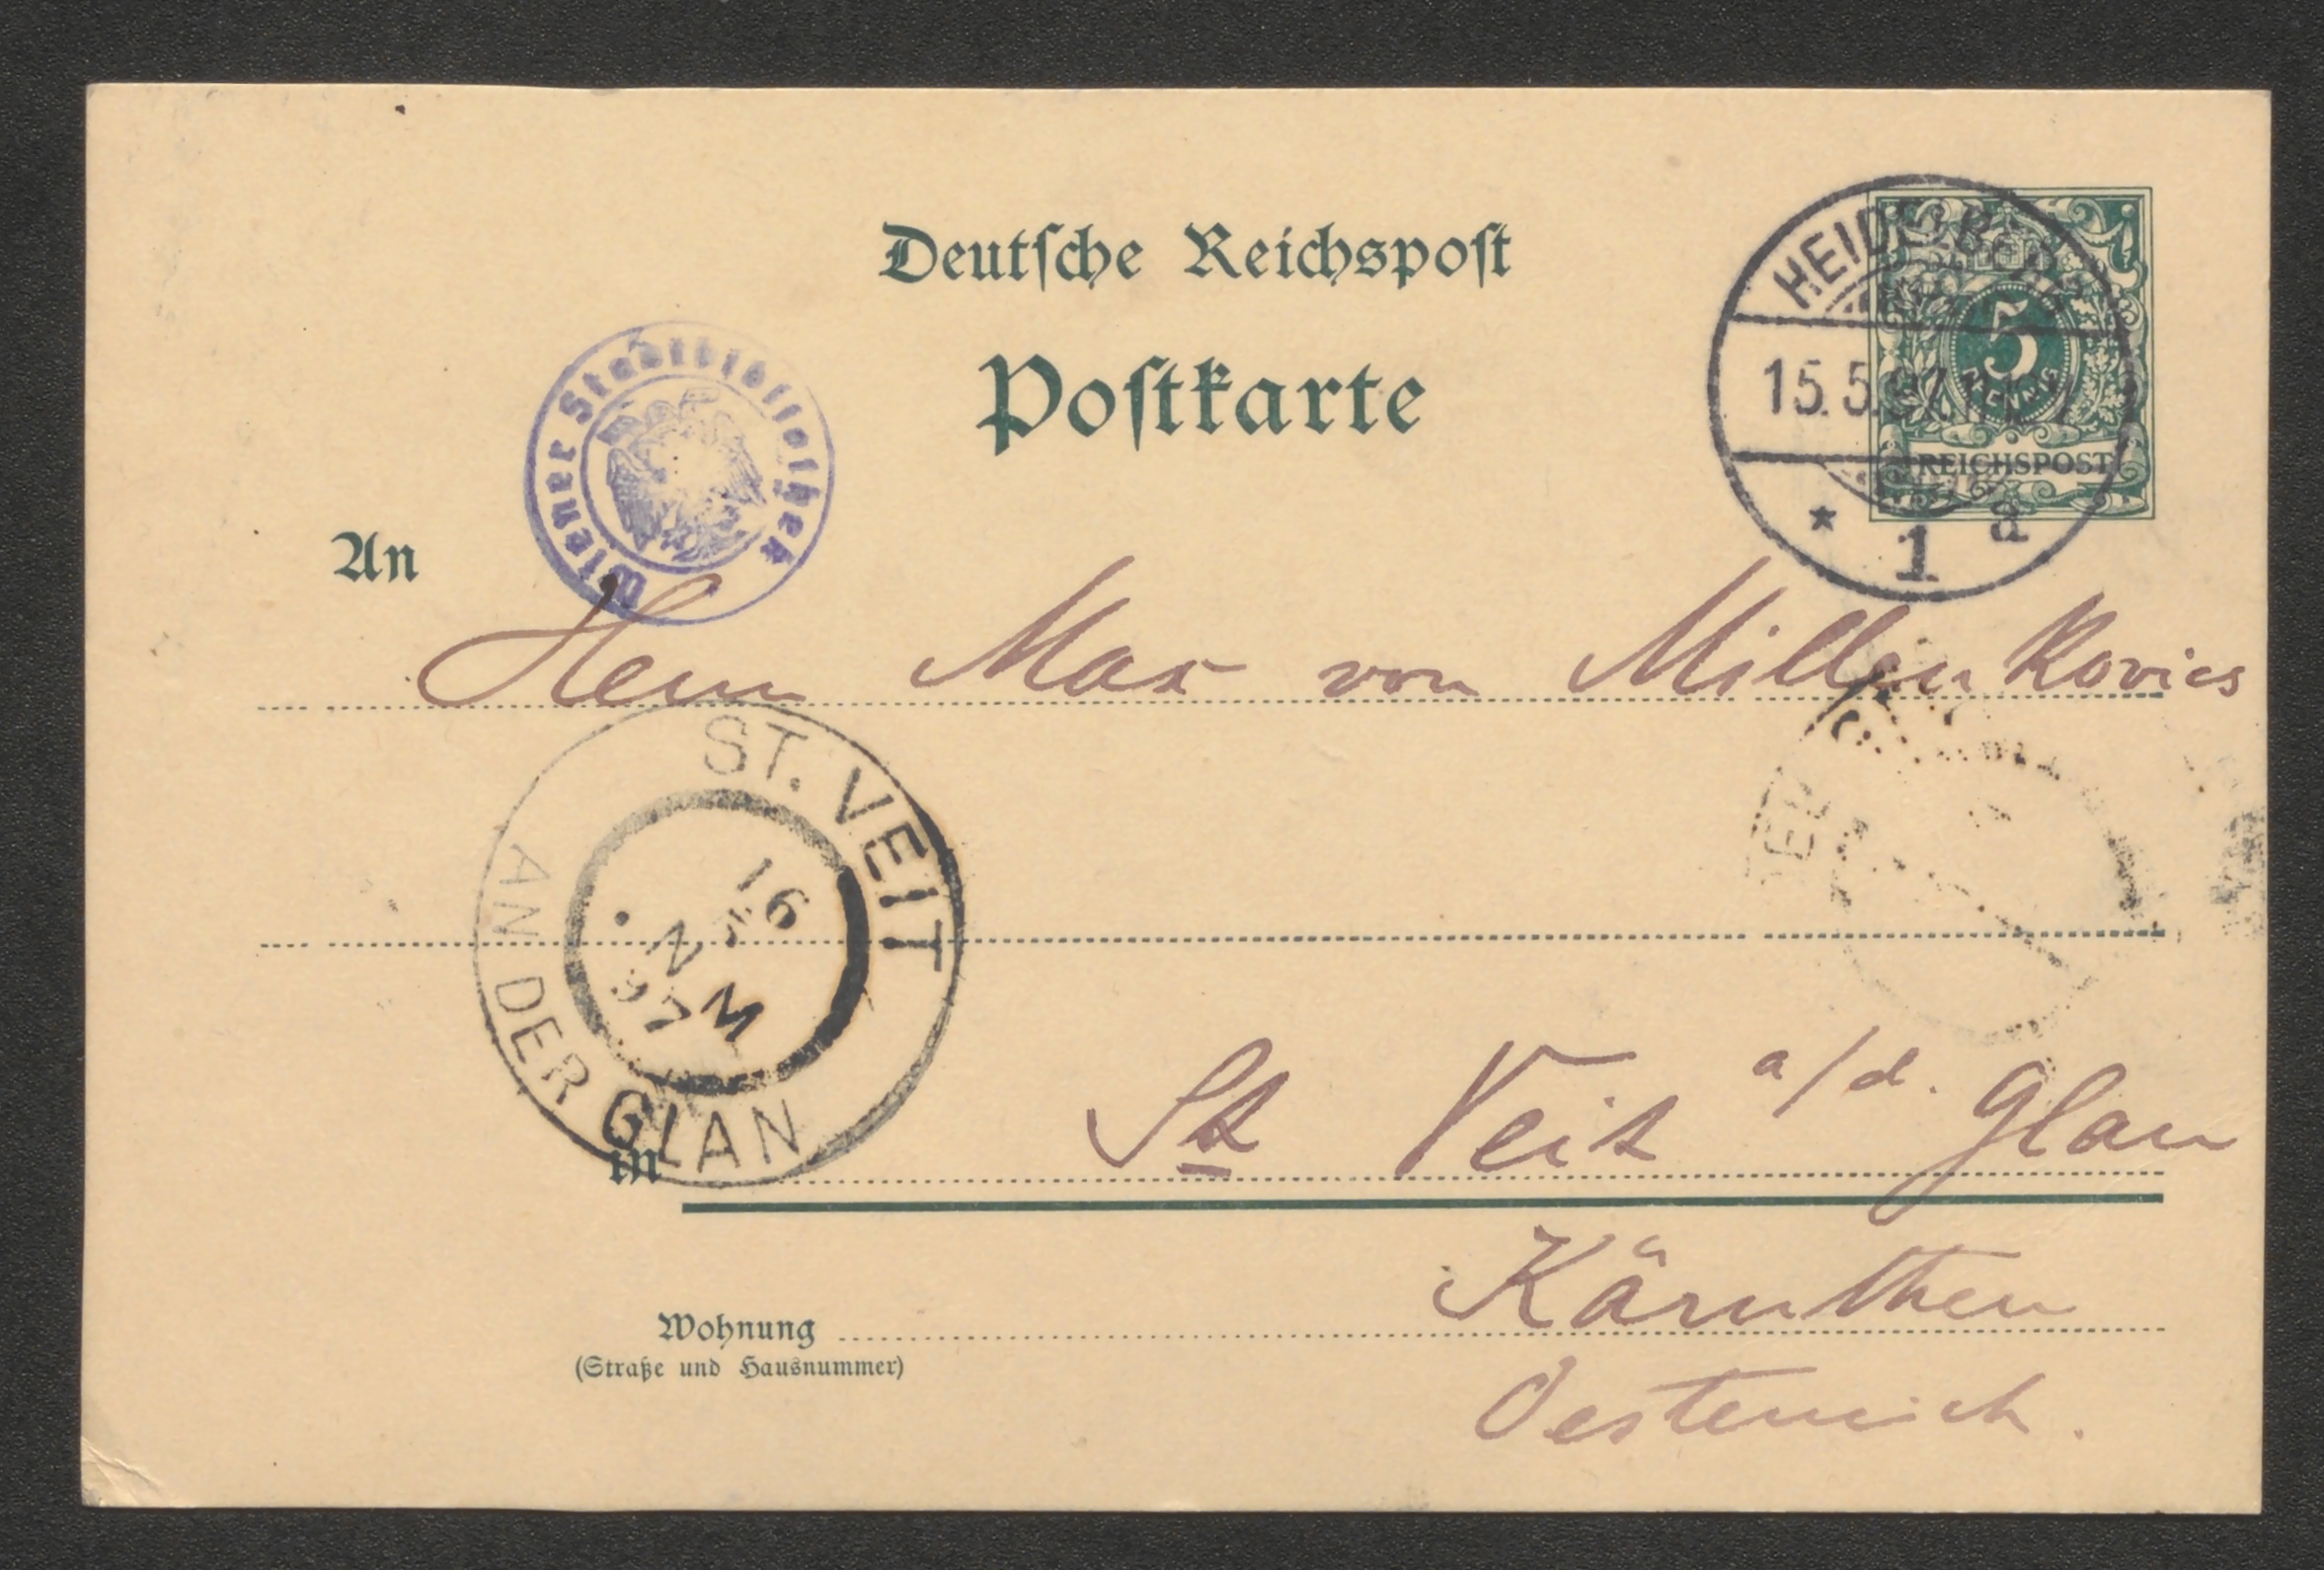 Deutsche Reichspost
Postkarte
HEIDELBERG
15.5.97.
* 1 a
5
PFENNIG
REICHSPOST
Wiener Stadtbibliothek
An
Herrn Max von Millenkovics
ST. VEIT
AN DER GLAN
16
5
N M
97
in St Veit a/d. Glan
Kärnthen
Wohnung
(Straße und Hausnummer)
Oesterreich.